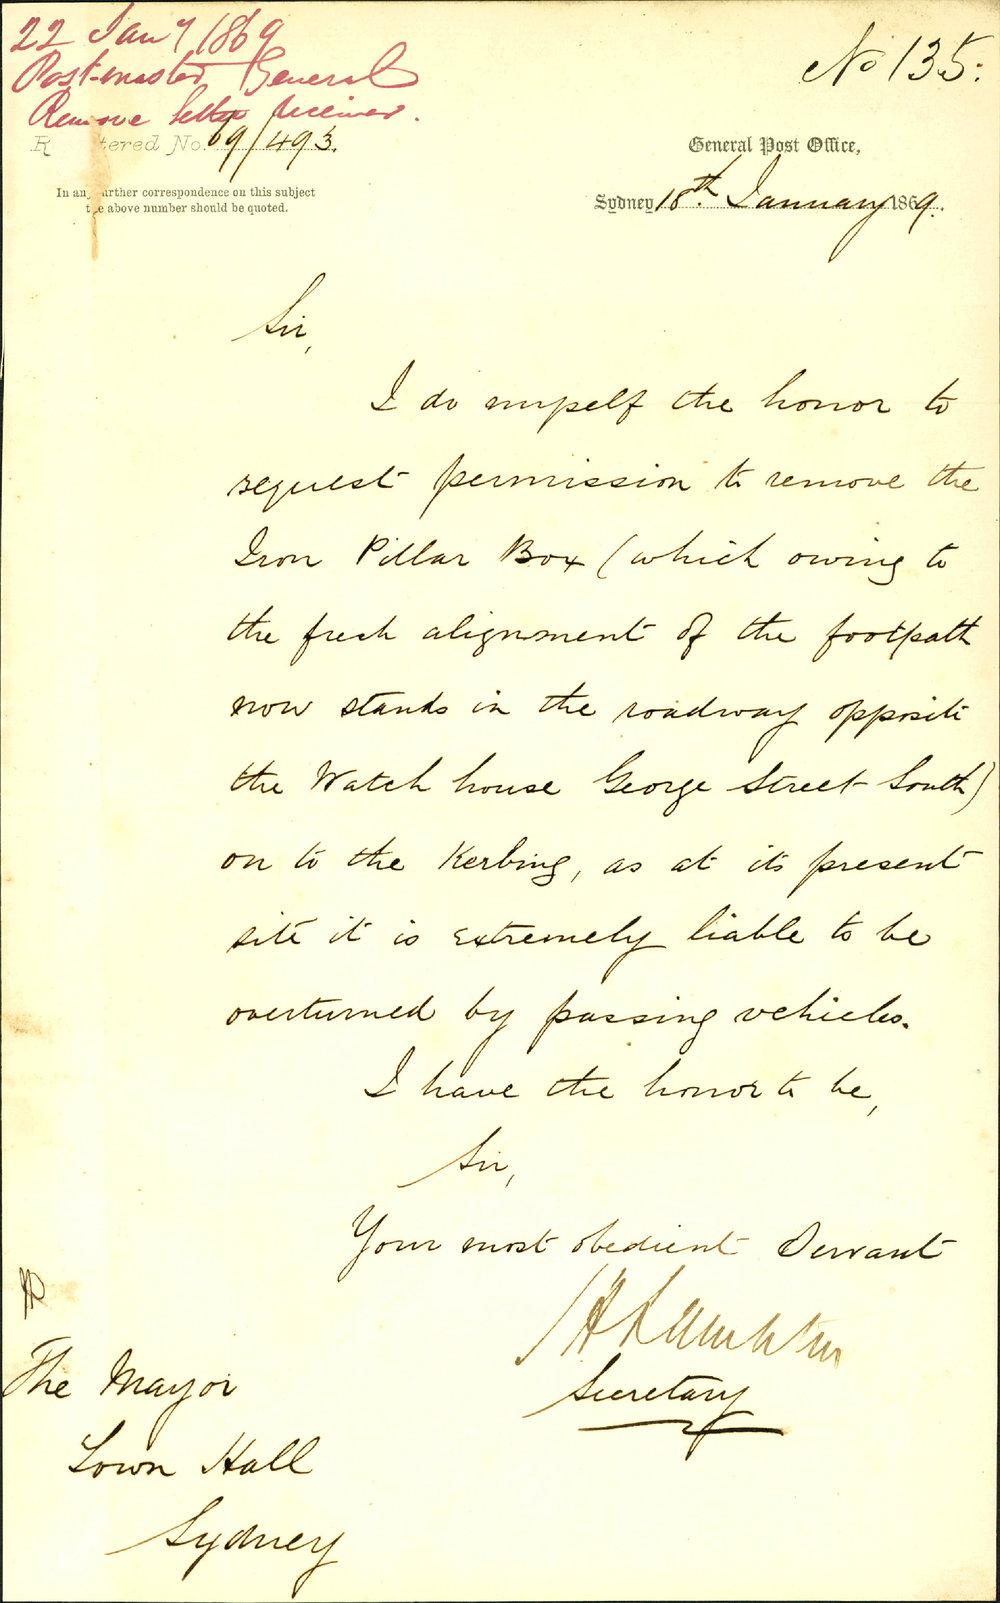 22 Jany 1869
Postmaster General
Remove letter receiver.
No 135.
R tered No. 69/493.
In any further correspondence on this subject
the above number should be quoted.
General Post Office,
Sydney 18th January 1869.
Sir,
I do myself the honor to
request permission to remove the
Iron Pillar Box (which owing to
the fresh alignment of the footpath
now stands in the roadway opposite
the Watch house George Street South)
on to the Kerbing, as at its present
site it is extremely liable to be
overturned by passing vehicles.
I have the honor to be,
Sir,
Your most obedient Servant
Secretary
The Mayor
Town Hall
Sydney